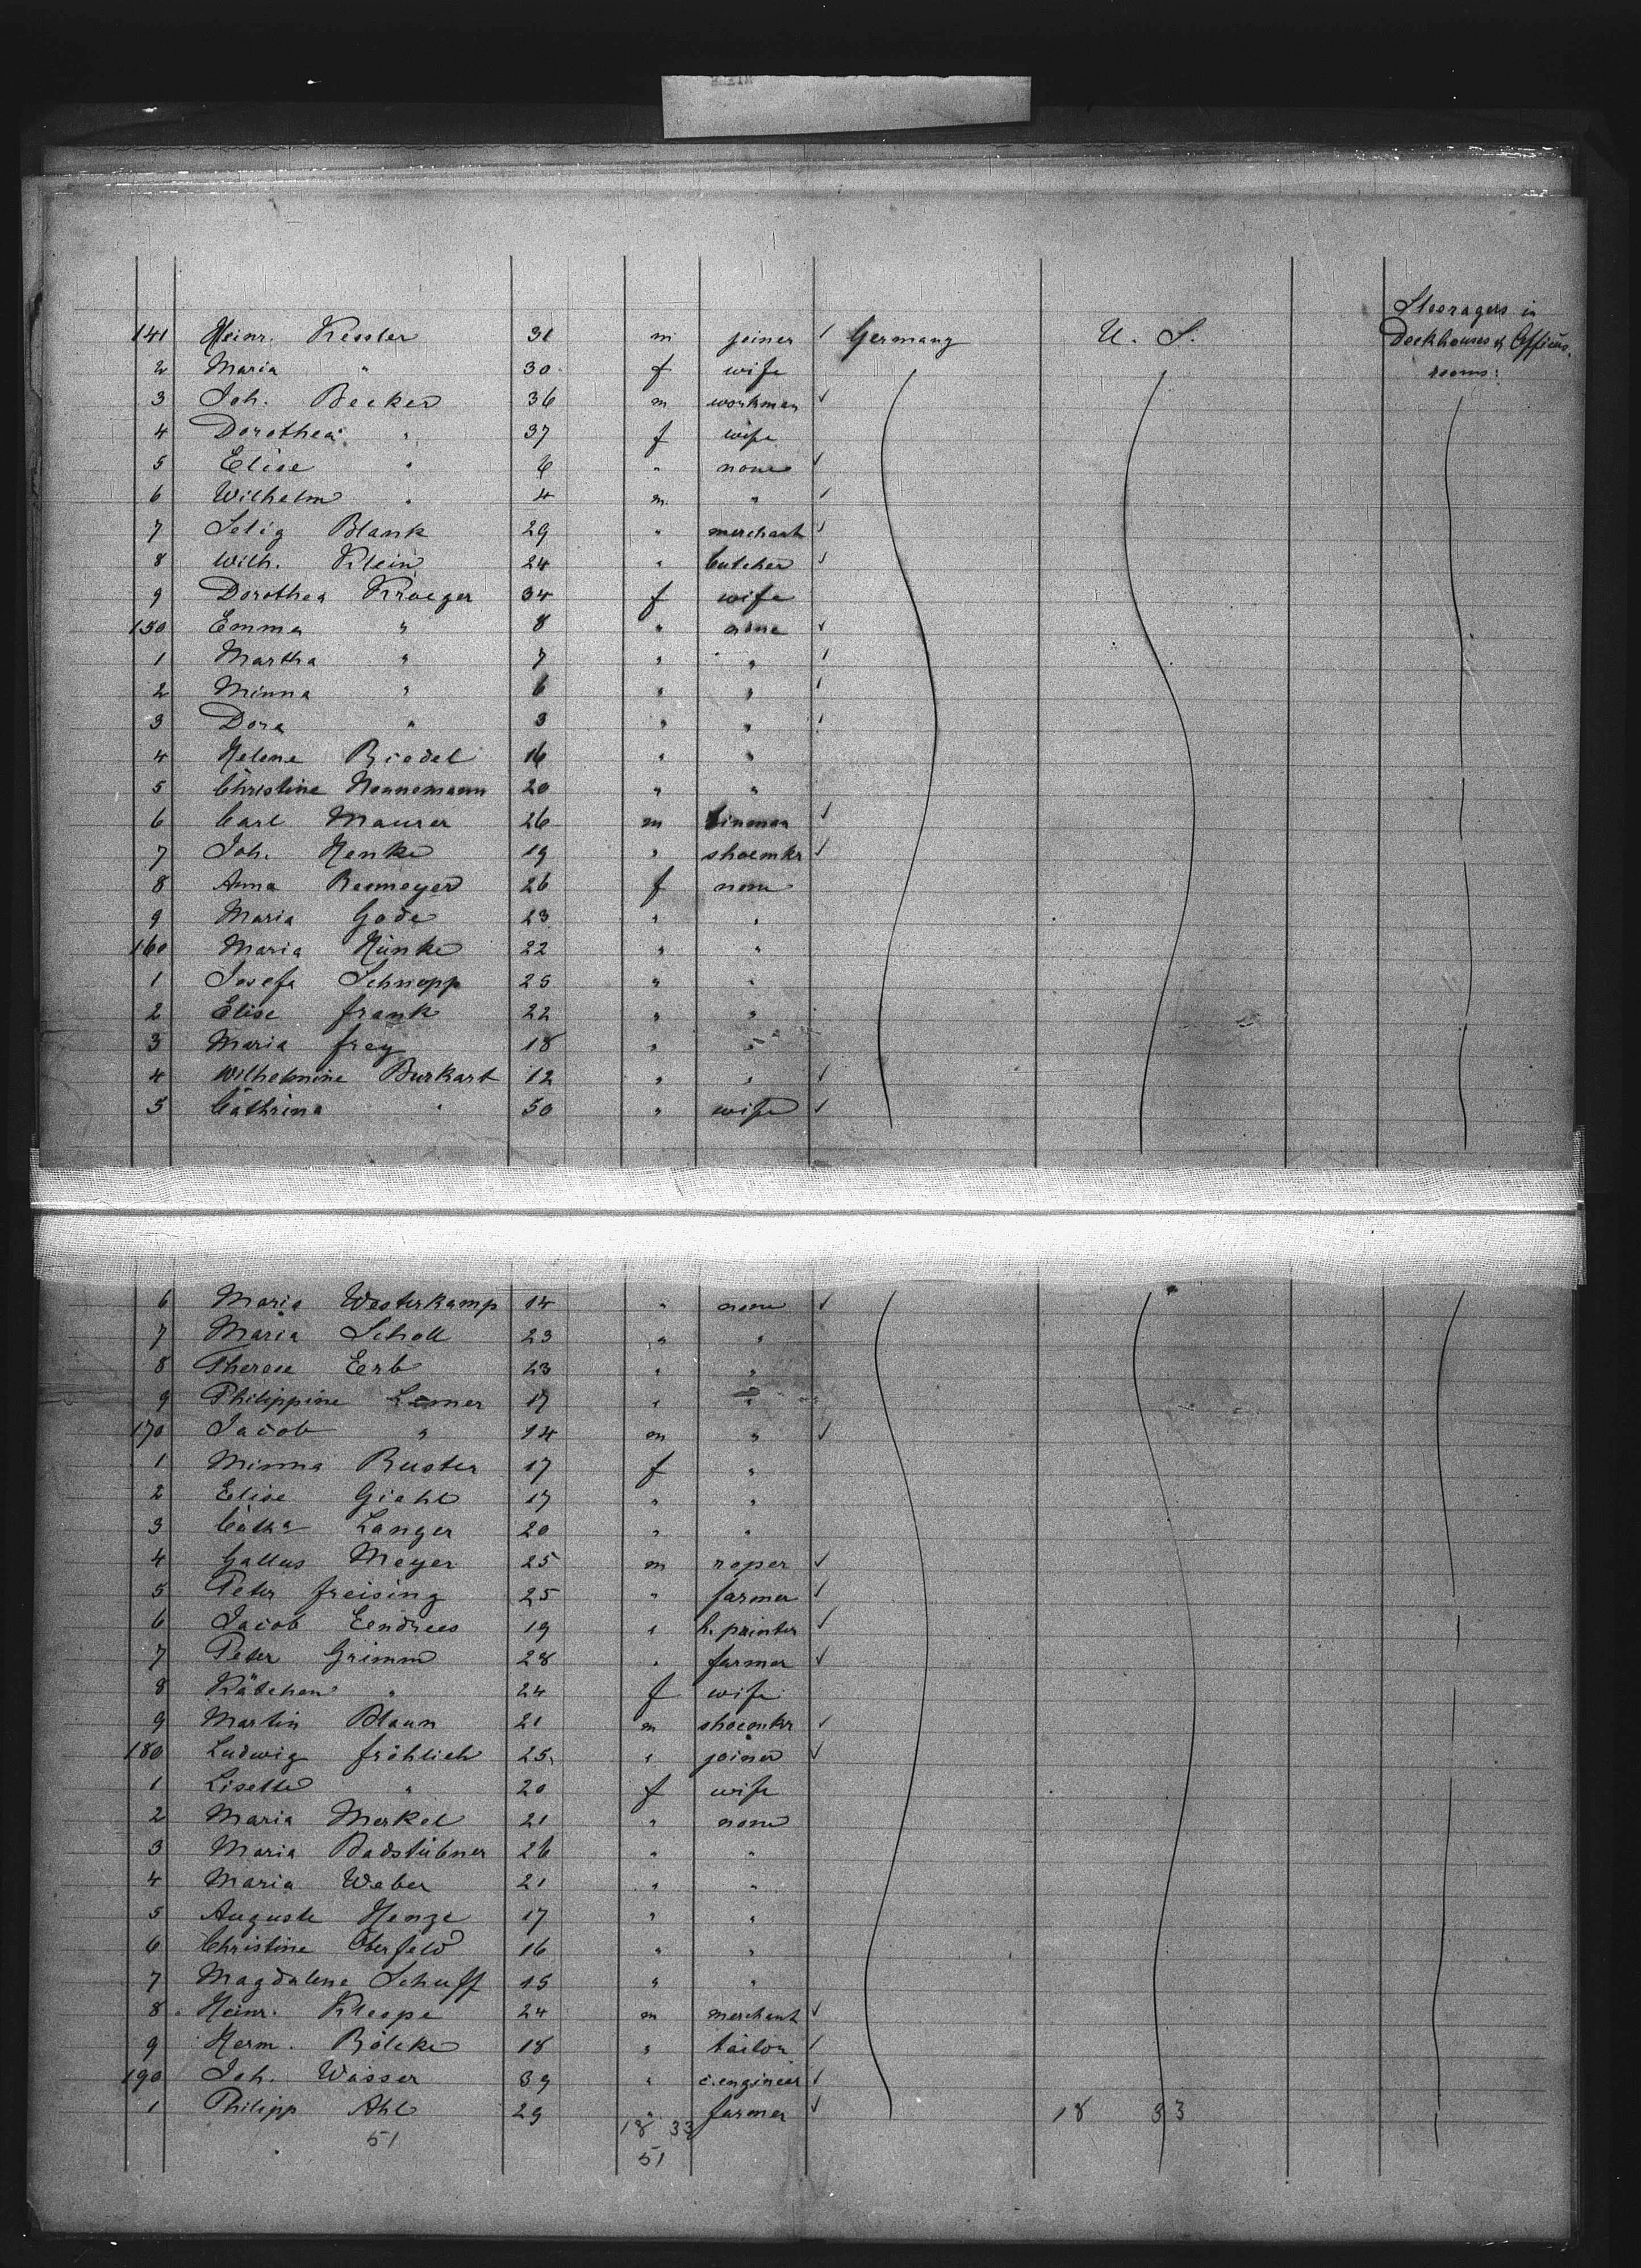 Steeragers in
141 Heinr. Kessler 31 m joiner Germany U. S. Deckhouses & Officers
2 Maria " 30 f wife rooms:
3 Joh. Becker 36 m workman
4 Dorothea " 37 f wife
5 Elise " 6 " none
6 Wilhelm " 4 m "
7 Selig Blank 29 " merchant
8 Wilh. Klein 24 " butcher
9 Dorothea Kroeger 34 f wife
150 Emma " 8 " none
1 Martha " 7 " "
2 Minna " 6 " "
3 Dora " 3 " "
4 Helene Riedel 16 " "
5 Christine Nonnemann 20 " "
6 Carl Maurer 26 m
7 Joh. Henke 19 " shoemkr
8 Anna Resmeyer 26 f none
9 Maria Gode 23 " "
160 Maria Hünke 22 " "
1 Josefa Schnepp 25 " "
2 Elise Frank 22 " "
3 Maria Frey 18 " "
4 Wilhelmine Burkart 12 " "
5 Cathrina " 50 " wife
6 Maria Westerkamp 14 " none
7 Maria Scholl 23 " "
8 Therese Eerb 23 " "
9 Philippine 17 " "
170 Jacob " 14 m "
1 Minna Ruster 17 f "
2 Elise Giehl 17 " "
3 Catha Langer 20 " "
4 Gallus Meyer 25 m roper
5 Peter Freising 25 " farmer
6 Jacob Eendrees 19 " h. painter
7 Peter Grimm 28 " farmer
8 Kätchen " 24 f wife
9 Martin Blaun 21 m shoemkr
180 Ludwig Fröhlich 25 " joiner
1 Lisette " 20 f wife
2 Maria Merkel 21 " none
3 Maria Badstübner 26 " "
4 Maria Weber 21 " "
5 Auguste Henze 17 " "
6 Christine Oberfeld 16 " "
7 Magdalene Schuff 15 " "
8 Heinr. Kleope 24 m merchant
9 Herm. Bölcke 18 " tailor
190 Joh. Wasser 39 " c. engineer
1 Philipp Ahl 29 " farmer 18 33
51 18 33
51